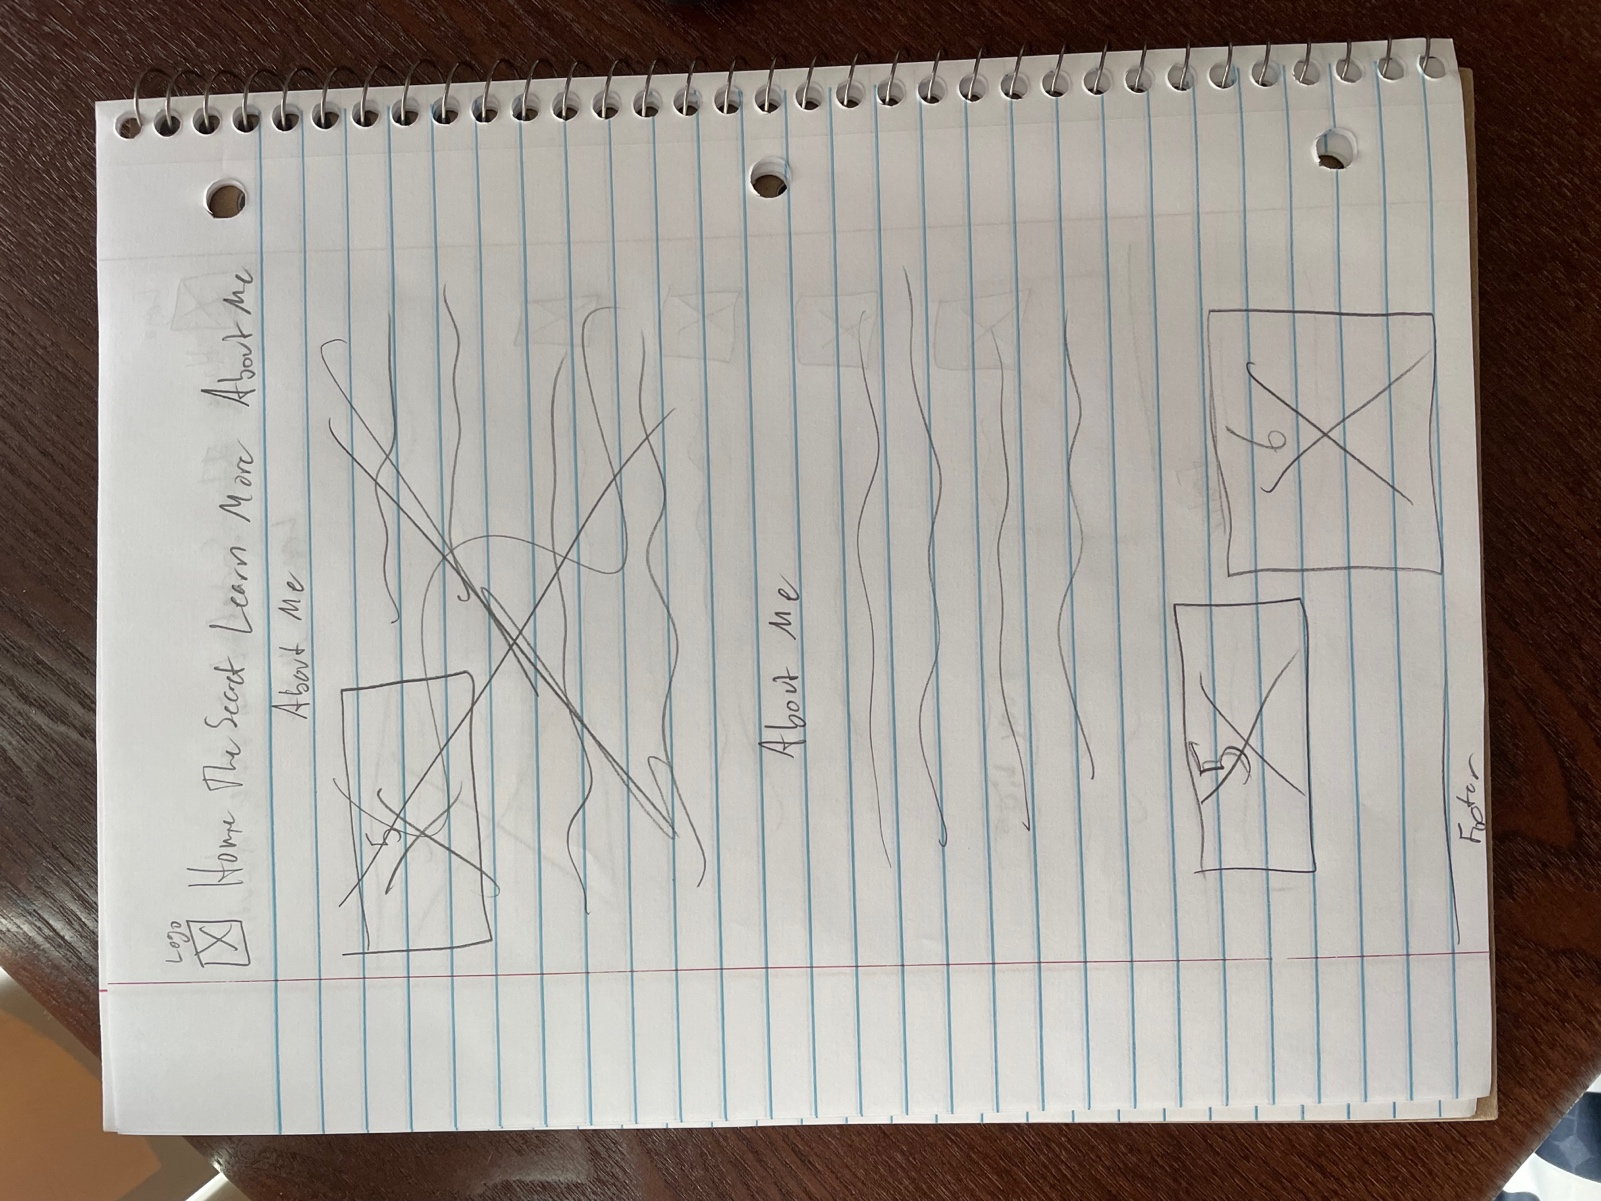 Logo
Home The Secret Learn More About Me
About Me
5
About Me
5
6
Footer